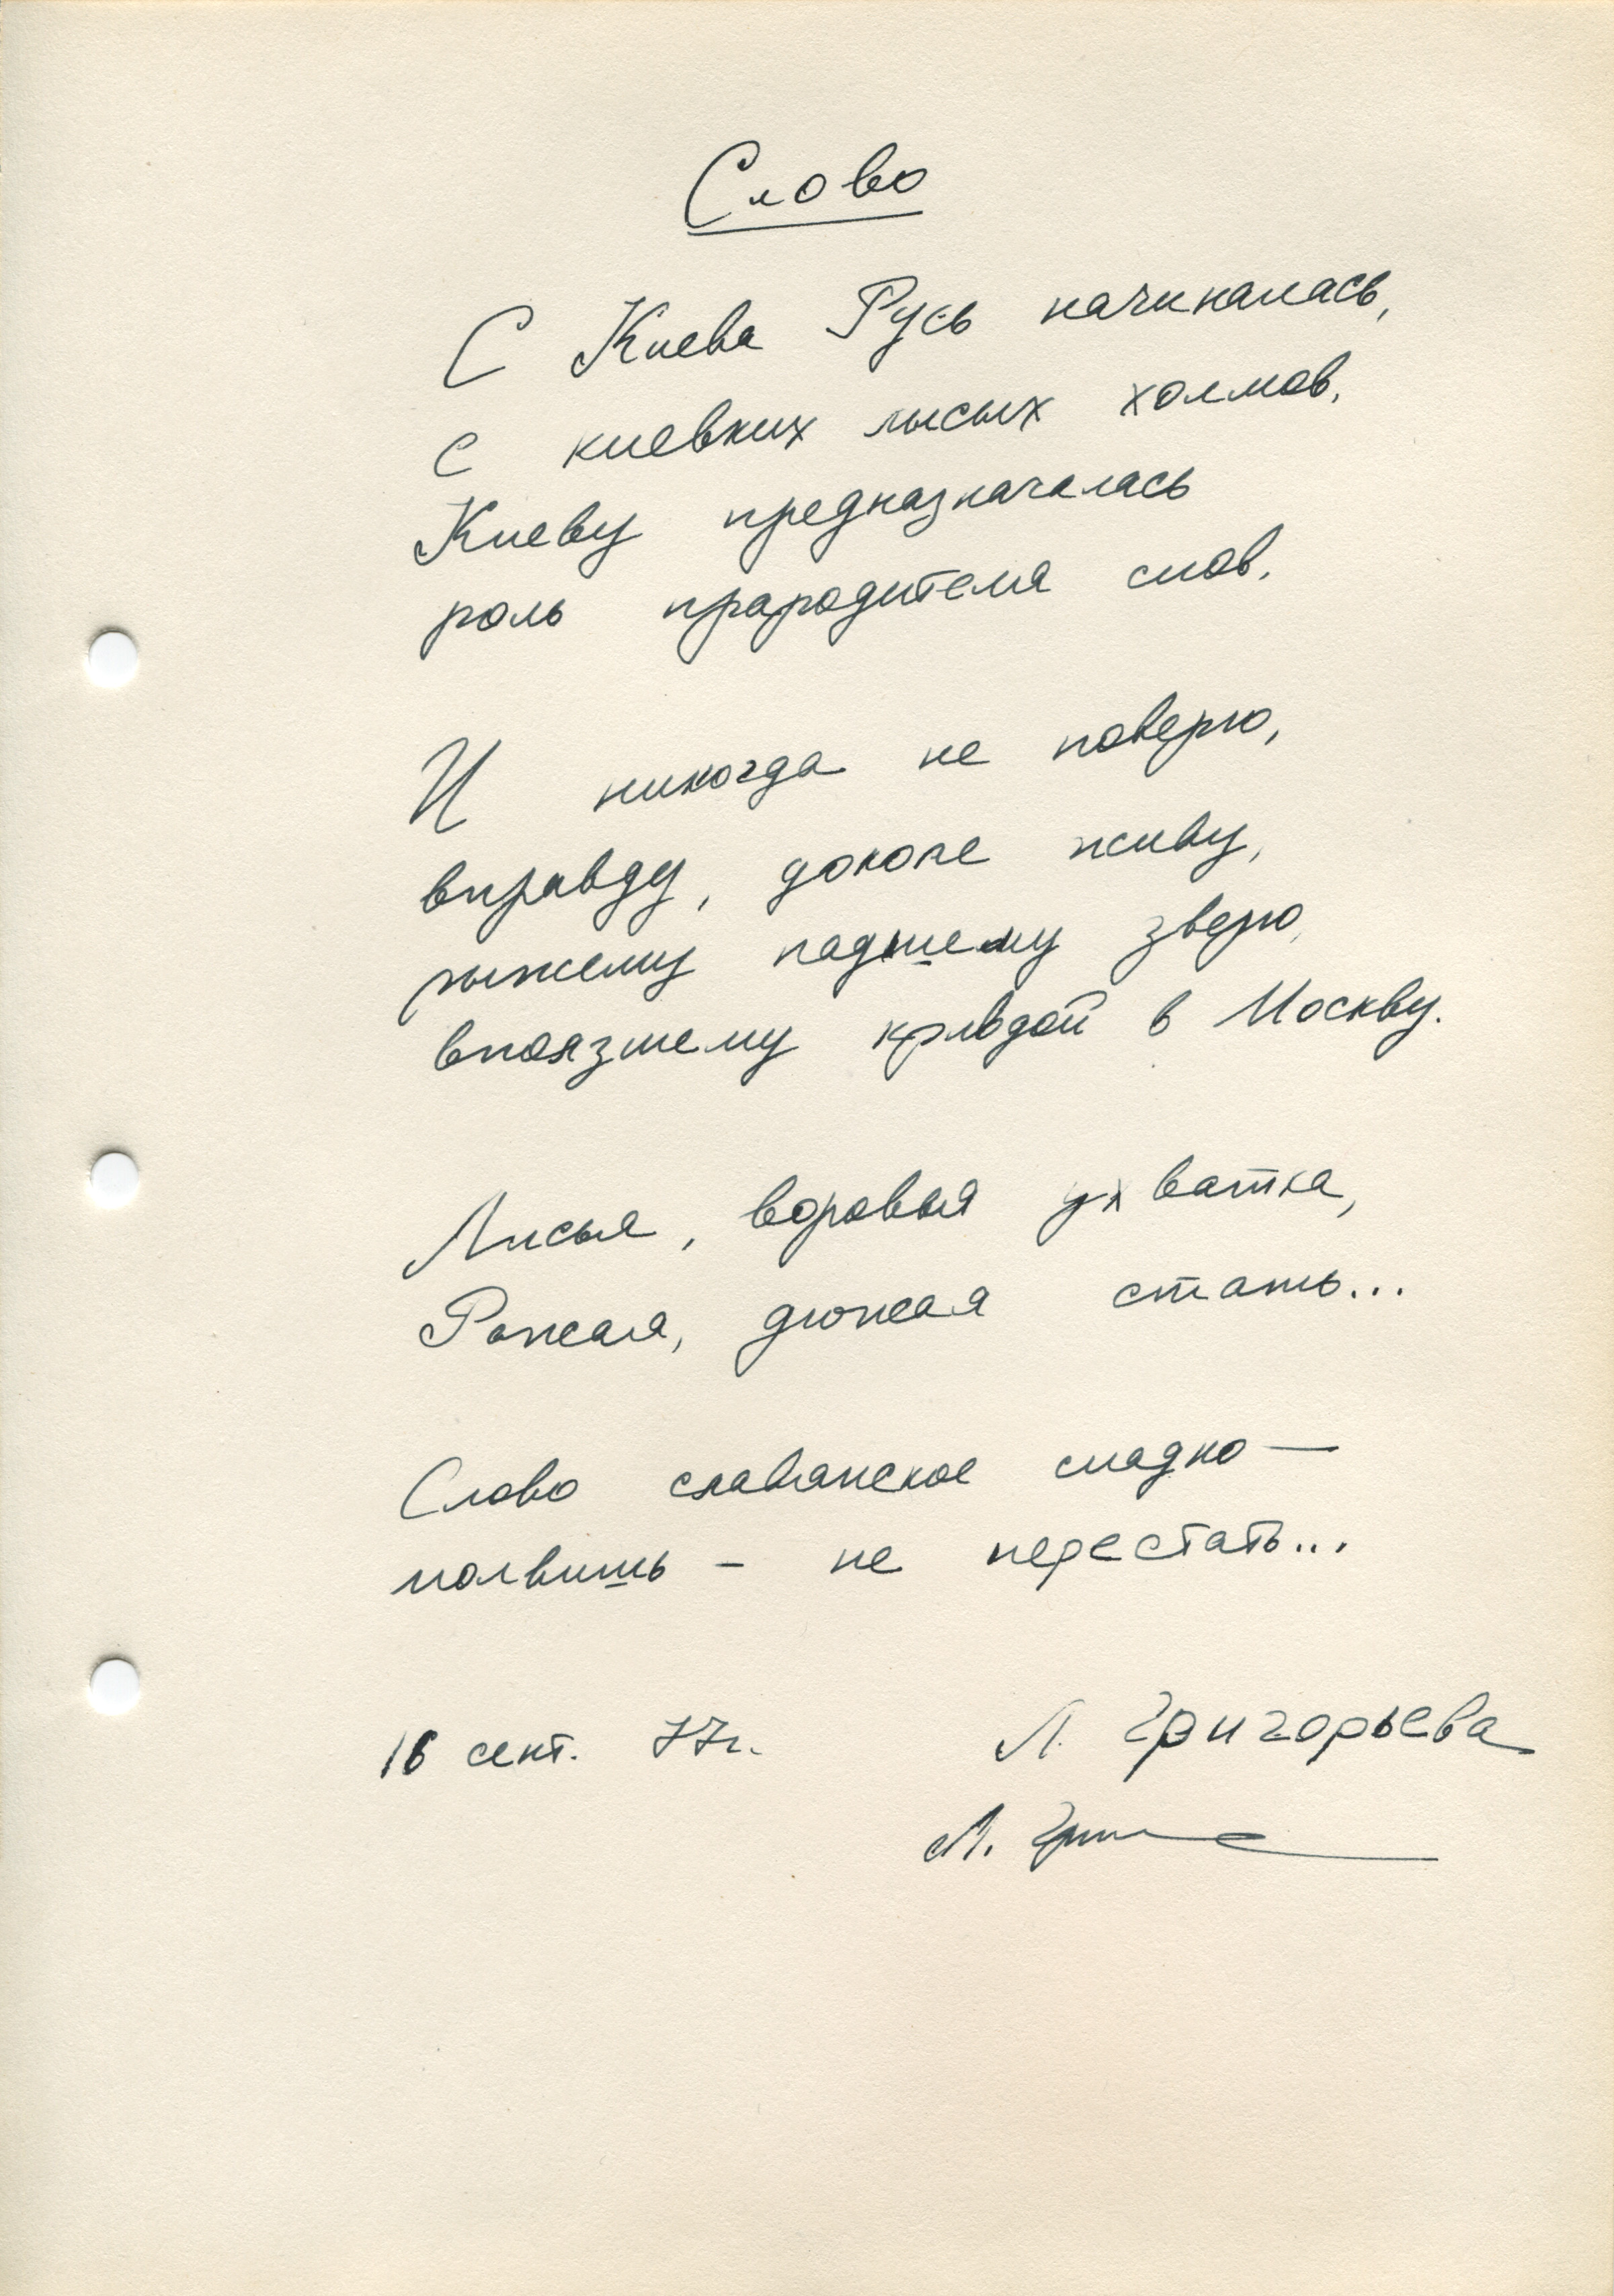 Слово
С Киева Русь начиналась,
с киевких лысых холмов,
Киеву предназначалась
роль прародителя слов.
И никогда не поверю,
вправду, доколе живу,
рыжему падшему зверю,
вползшему кривдой в Москву.
Лисья, воровья ухватка,
Рожая, дюжая стать...
Слово славянское сладко —
молвишь - не перестать...
16 сент. 77г.
Л. Григорьева